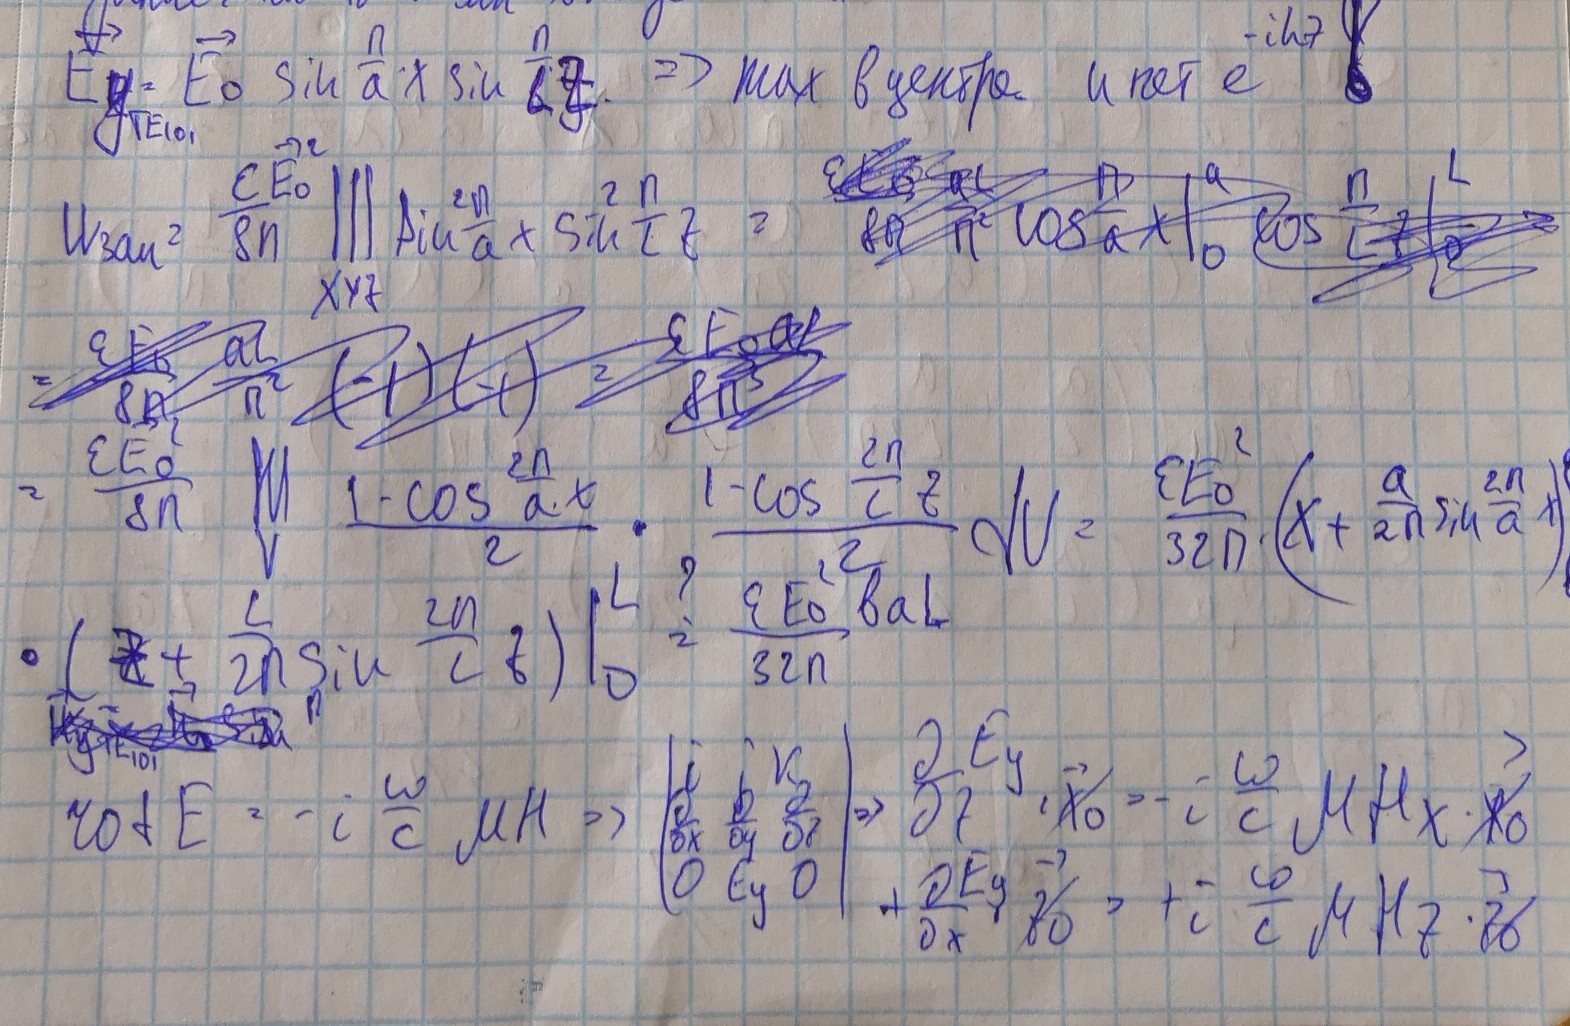 E⃗y TE101 = E⃗0 sin π/a·x sin π/L z. => max в центре и нет e^-ihz !
Wзап = εE⃗0²/8π ∭XYZ sin² π/a x sin² π/L z =
= εE0²/8π ∭V (1-cos 2π/a·x)/2 · (1-cos 2π/L z)/2 dV = εE0²/32π ·(x + a/2π sin 2π/a x)
· (z + L/2π sin 2π/L z)|0 L =? εE0² baL/32π
rot E = -i ω/c μH => |i j k; ∂/∂x ∂/∂y ∂/∂z; 0 Ey 0| => ∂Ey/∂z · x⃗0 = -i ω/c μHx · x⃗0
+ ∂Ey/∂x z⃗0 = +i ω/c μHz · z⃗0